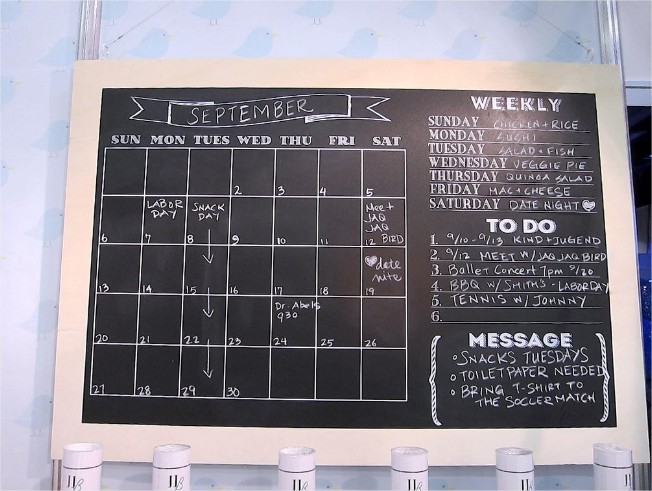 SEPTEMBER
SUN MON TUES WED THU FRI SAT
1 2 3 4 5
LABOR DAY
SNACK DAY
Meet JAQ JAQ BIRD
6 7 8 9 10 11 12
date nite
13 14 15 16 17 18 19
Dr. Abels
930
20 21 22 23 24 25 26
27 28 29 30
WEEKLY
SUNDAY CHICKEN + RICE
MONDAY SUCHI
TUESDAY SALAD + FISH
WEDNESDAY VEGGIE PIE
THURSDAY QUINOA SALAD
FRIDAY MAC + CHEESE
SATURDAY DATE NIGHT
TO DO
1. 9/10 - 9/13 KIND + JUGEND
2. 9/12 MEET W/ JAQ JAQ BIRD
3. Ballet Concert 7pm 9/20
4. BBQ W/ SMITHS - LABORDAY
5. TENNIS W/ JOHNNY
6.
MESSAGE
SNACKS TUESDAYS
TOILET PAPER NEEDED
BRING T-SHIRT TO
THE SOCCER MATCH